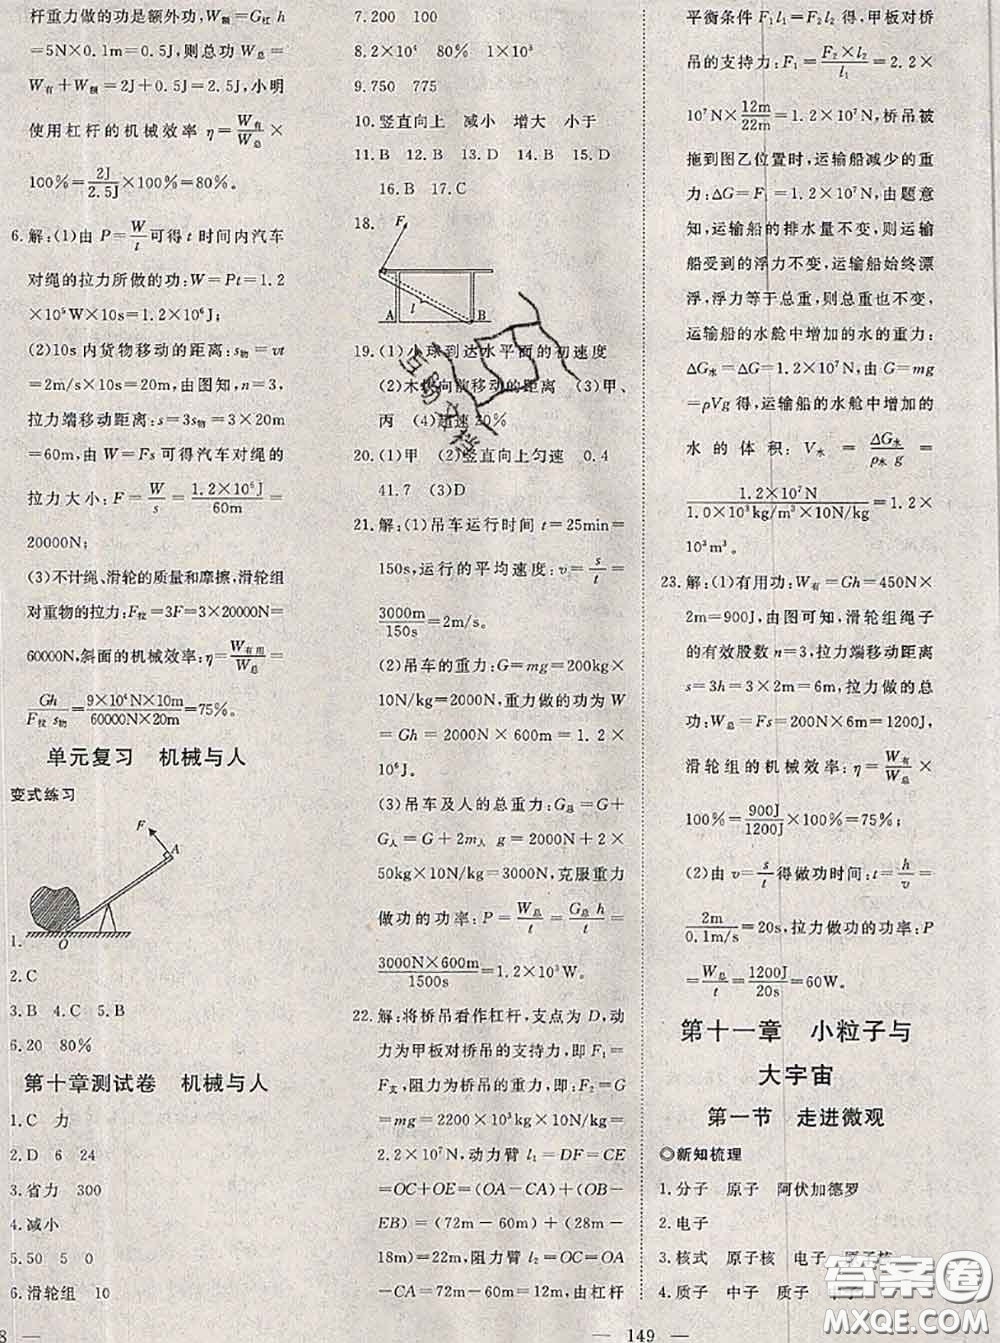 杆重力做的功是额外功,W额=G杠 h
=5N×0.1m=0.5J,则总功 W总=
W有+W额=2J+0.5J=2.5J,小明
使用杠杆的机械效率 η=W有/W总×
100%=2J/2.5J×100%=80%。
6.解:(1)由 P=W/t可得 t 时间内汽车
对绳的拉力所做的功:W=Pt=1.2
×10⁵W×10s=1.2×10⁶J;
(2)10s 内货物移动的距离:s物=vt
=2m/s×10s=20m,由图知,n=3,
拉力端移动距离:s=3s物=3×20m
=60m,由 W=Fs 可得汽车对绳的
拉力大小:F=W/s=1.2×10⁶J/60m=
20000N;
(3)不计绳、滑轮的质量和摩擦,滑轮组
对重物的拉力:F拉=3F=3×20000N=
60000N,斜面的机械效率:η=W有用/W总=
Gh/F拉 s物=9×10⁴N×10m/60000N×20m=75%。
单元复习 机械与人
变式练习
F
A
O
1.
2.C
3.B 4.C 5.B
6.20 80%
第十章测试卷 机械与人
1.C 力
2.D 6 24
3.省力 300
4.减小
5.50 5 0
6.滑轮组 10
7.200 100
8.2×10⁴ 80% 1×10³
9.750 775
10.竖直向上 减小 增大 小于
11.B 12.B 13.D 14.B 15.D
16.B 17.C
18.
F
l
A B
19.(1)小球到达水平面的初速度
(2)木块向前移动的距离 (3)甲、
丙 (4)超速20%
20.(1)甲 (2)竖直向上匀速 0.4
41.7 (3)D
21.解:(1)吊车运行时间 t=25min=
150s,运行的平均速度:v=s/t=
3000m/150s=2m/s。
(2)吊车的重力:G=mg=200kg×
10N/kg=2000N,重力做的功为 W
=Gh=2000N×500m=1×
10⁶J。
(3)吊车及人的总重力:G总=G+
G人=G+2m人 g=2000N+2×
50kg×10N/kg=3000N,克服重力
做功的功率:P=W总/t=G总 h/t=
3000N×600m/1500s=1.2×10³W。
22.解:将桥吊看作杠杆,支点为 D,动
力为甲板对桥吊的支持力,即 F₁=
F支,阻力为桥吊的重力,即:F₂=G
=mg=2200×10³kg×10N/kg=
2.2×10⁷N,动力臂 l₁=DF=CE
=OC+OE=(OA-CA)+(OB-
EB)=(72m-60m)+(28m-
18m)=22m,阻力臂 l₂=OC=OA
-CA=72m-60m=12m,由杠杆
平衡条件 F₁l₁=F₂l₂ 得,甲板对桥
吊的支持力:F₁=F₂×l₂/l₁=2.2×
10⁷N×12m/22m=1.2×10⁷N,桥吊被
拖到图乙位置时,运输船减少的重
力:ΔG=F₁=1.2×10⁷N,由题意
知,运输船的排水量不变,则运输
船受到的浮力不变,运输船始终漂
浮,浮力等于总重,则总重也不变,
运输船的水舱中增加的水的重力:
ΔG水=ΔG=1.2×10⁷N,由 G=mg
=ρVg 得,运输船的水舱中增加的
水的体积:V水=ΔG水/ρ水 g=
1.2×10⁷N/1.0×10³kg/m³×10N/kg=1.2×
10³m³。
23.解:(1)有用功:W有=Gh=450N×
2m=900J,由图可知,滑轮组绳子
的有效股数 n=3,拉力端移动距离
s=3h=3×2m=6m,拉力做的总
功:W总=Fs=200N×6m=1200J,
滑轮组的机械效率:η=W有/W总×
100%=900J/1200J×100%=75%;
(2)由 v=s/t得做功时间:t=h/v=
2m/0.1m/s=20s,拉力做功的功率:P
=W总/t=1200J/20s=60W。
第十一章 小粒子与
大宇宙
第一节 走进微观
◎新知梳理
1.分子 原子 阿伏加德罗
2.电子
3.核式 原子核 电子 原子核
4.质子 中子 质子 中子
149
答案圈
MXQE.COM